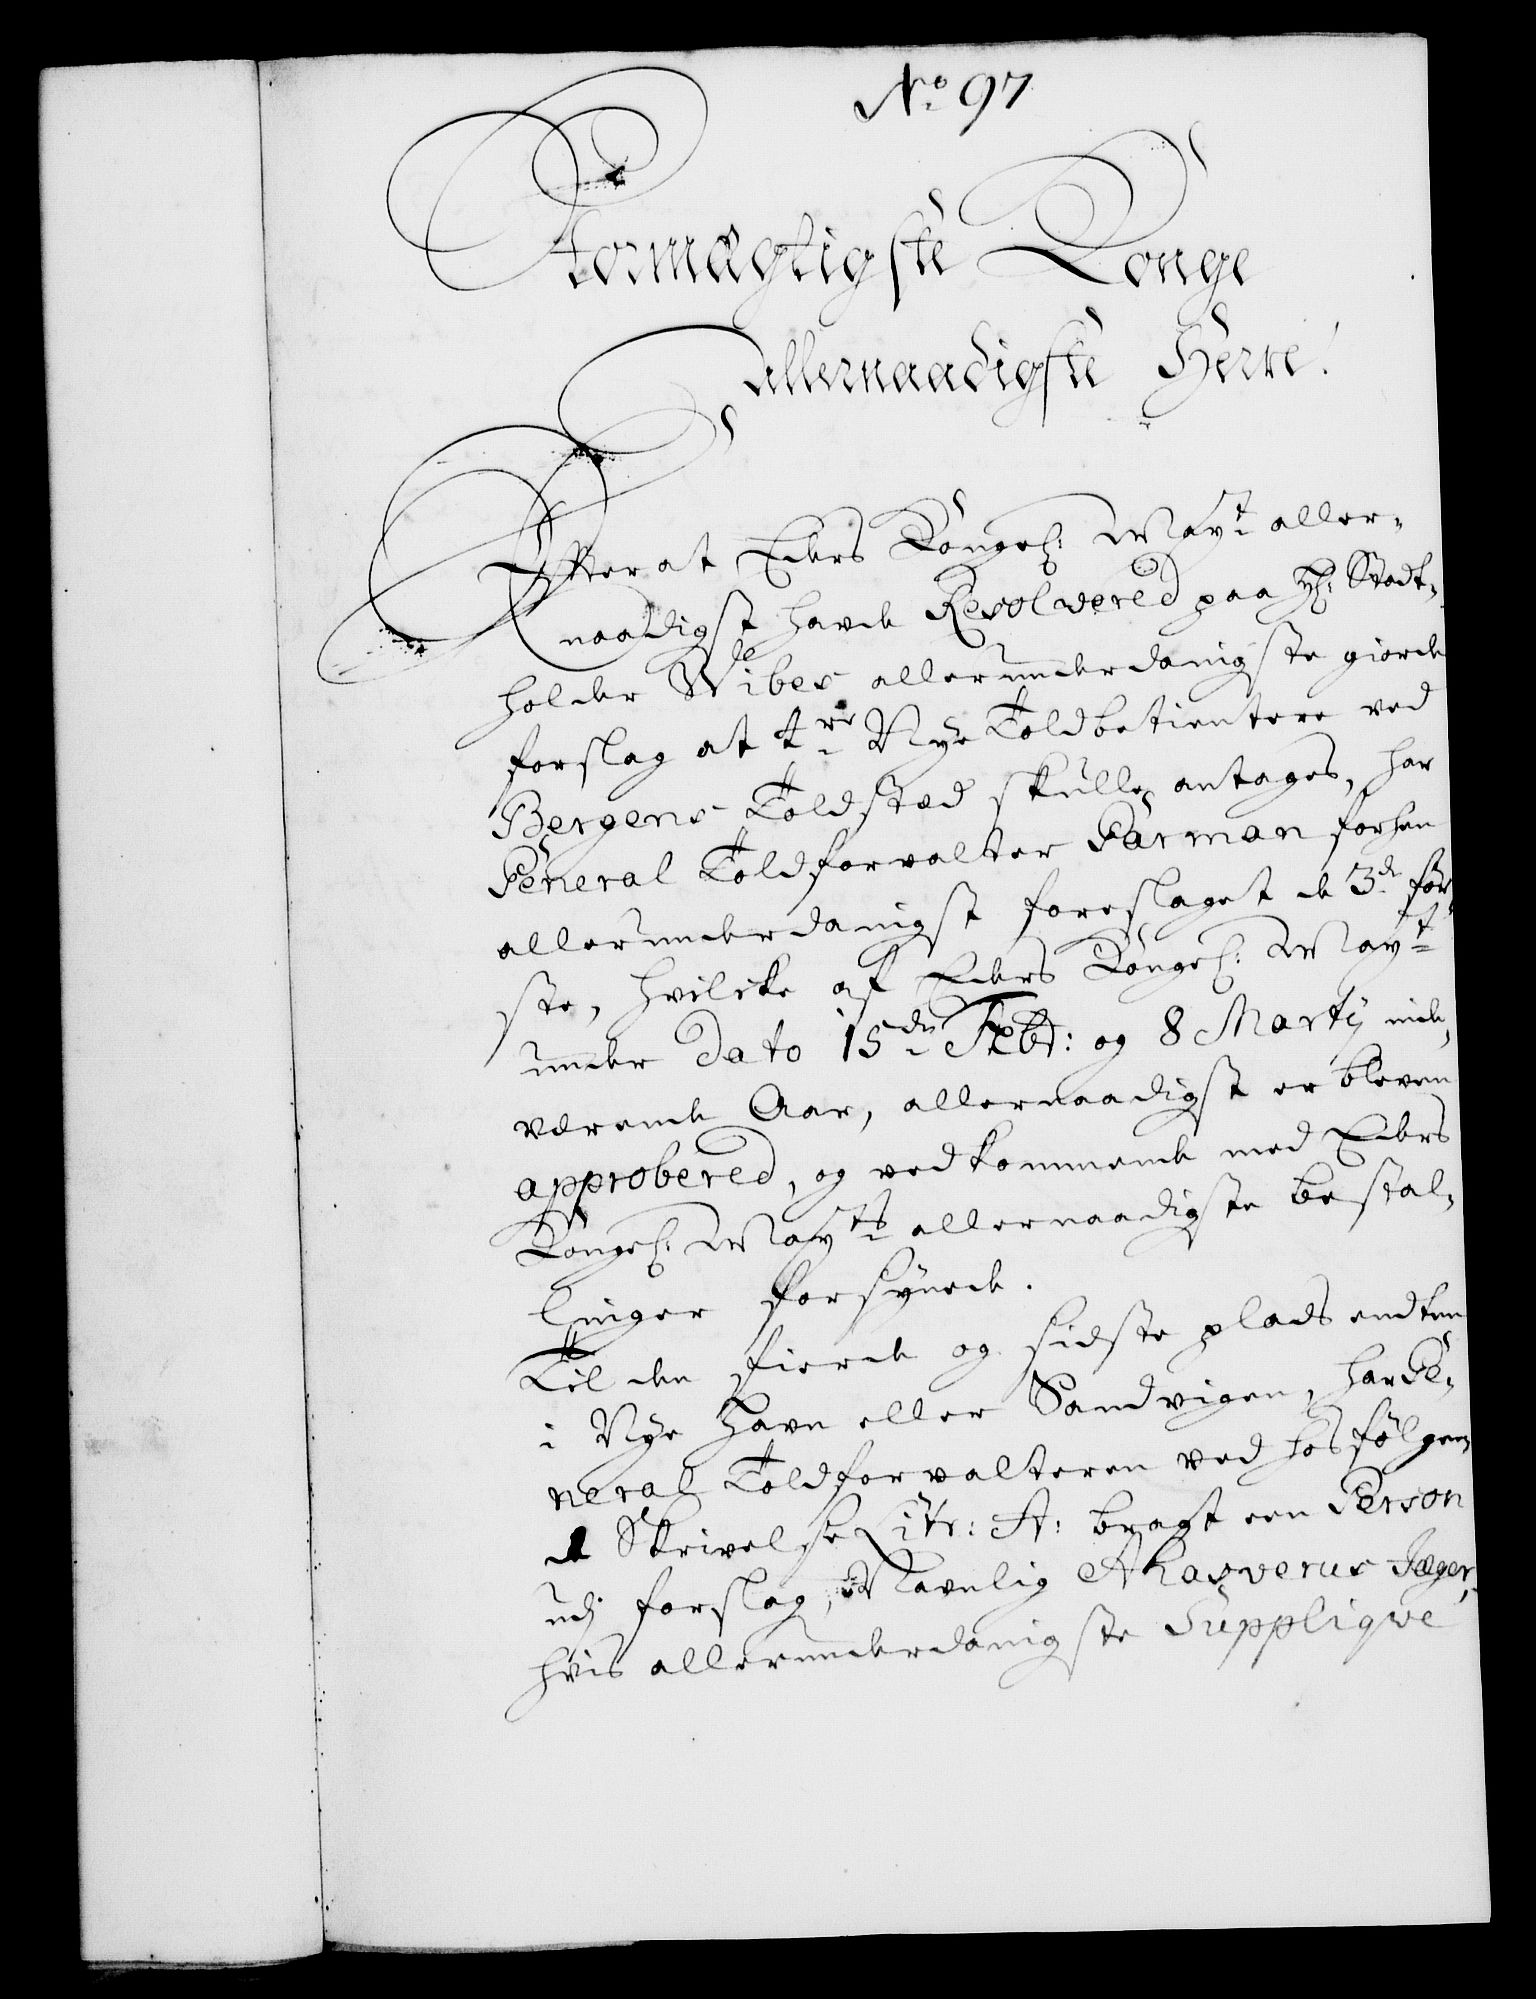 No 97
Stormægtigste Konge
allernaadigste Herre!
Efterat Eders Kongel: May:t aller-
naadigst havde Resolvered paa H: Stadt-
holder Wibes allerunderdanigste giorde
forslag at Nye Toldbetientere ved
Bergens Toldsted skulle antages, har
General Toldforvalter Pårman forhen
allerunderdanigst foreslaget de 3de før-
ste, hvilcke af Eders Kongel: May:t
under Dato 15de Febr: og 8 Martij inde-
værende Aar, allernaadigst er bleven
approbered, og vedkommende med Eders
Kongel: May:ts allernaadigste bestal-
linger forsynede.
Til den fierde og sidste plads endten
i Nye Havn eller Sandvigen, har Ge-
neral Toldforvalteren ved hosfølgen-
de Skrivelse Litr: A: bragt een Person
udj forslag, Navnlig Ahasverus Jæger,
hvis allerunderdanigste Suppliqve